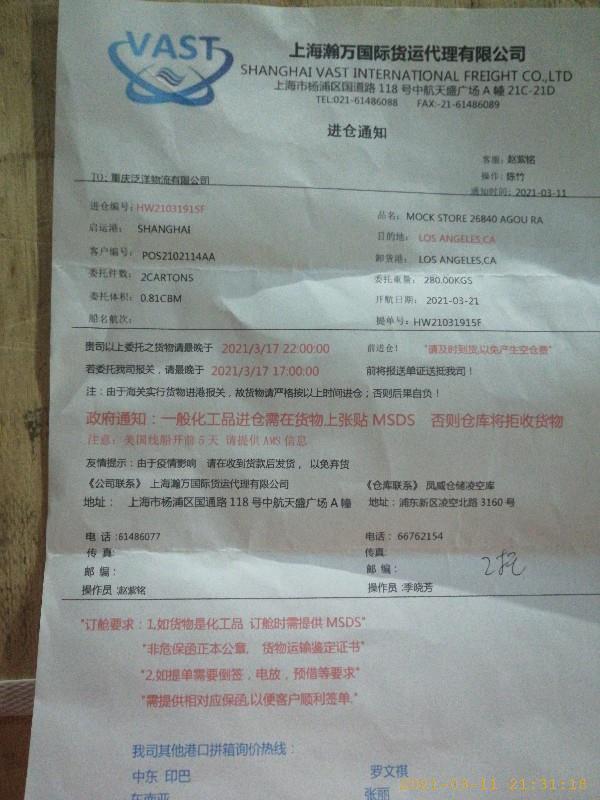 VAST
上海瀚万国际货运代理有限公司
SHANGHAI VAST INTERNATIONAL FREIGHT CO.,LTD
上海市杨浦区国通路 118 号中航天盛广场 A 幢 21C-21D
TEL:021-61486088 FAX:-21-61486089
进仓通知
客服：赵紫铭
操作：陈竹
TO：重庆泛洋物流有限公司
通知时间：2021-03-11
进仓编号：HW2103191SF
品名：MOCK STORE 26840 AGOU RA
启运港： SHANGHAI
目的地： LOS ANGELES,CA
客户编号： POS2102114AA
卸货港： LOS ANGELES,CA
委托件数： 2CARTONS
委托重量： 280.00KGS
委托体积： 0.81CBM
开航日期： 2021-03-21
船名航次：
提单号：HW2103191SF
贵司以上委托之货物请最晚于 2021/3/17 22:00:00 前进仓！ "请及时到货,以免产生空仓费"
若委托我司报关，请最晚于 2021/3/17 17:00:00 前将报送单证送抵我司！
注：由于海关实行货物进港报关，故货物请严格按以上时间进仓；否则后果自负！
政府通知：一般化工品进仓需在货物上张贴 MSDS 否则仓库将拒收货物
注意：美国线船开前 5 天 请提供 AMS 信息
友情提示：由于疫情影响 请在收到货款后发货，以免弃货
《公司联系》上海瀚万国际货运代理有限公司
《仓库联系》凤威仓储凌空库
地址： 上海市杨浦区国通路 118 号中航天盛广场 A 幢
地址：浦东新区凌空北路 3160 号
电 话 :61486077
电话： 66762154
传 真:
传真:
邮 编：
邮 编：
2托
操作员 :赵紫铭
操作员 :季晓芳
"订舱要求：1,如货物是化工品 订舱时需提供 MSDS"
"非危保函正本公章， 货物运输鉴定证书"
"2.如提单需要倒签，电放，预借等要求"
"需提供相对应保函,以便客户顺利签单."
我司其他港口拼箱询价热线：
中东 印巴
罗文祺
东南亚
张丽
2021-03-11 21:31:18